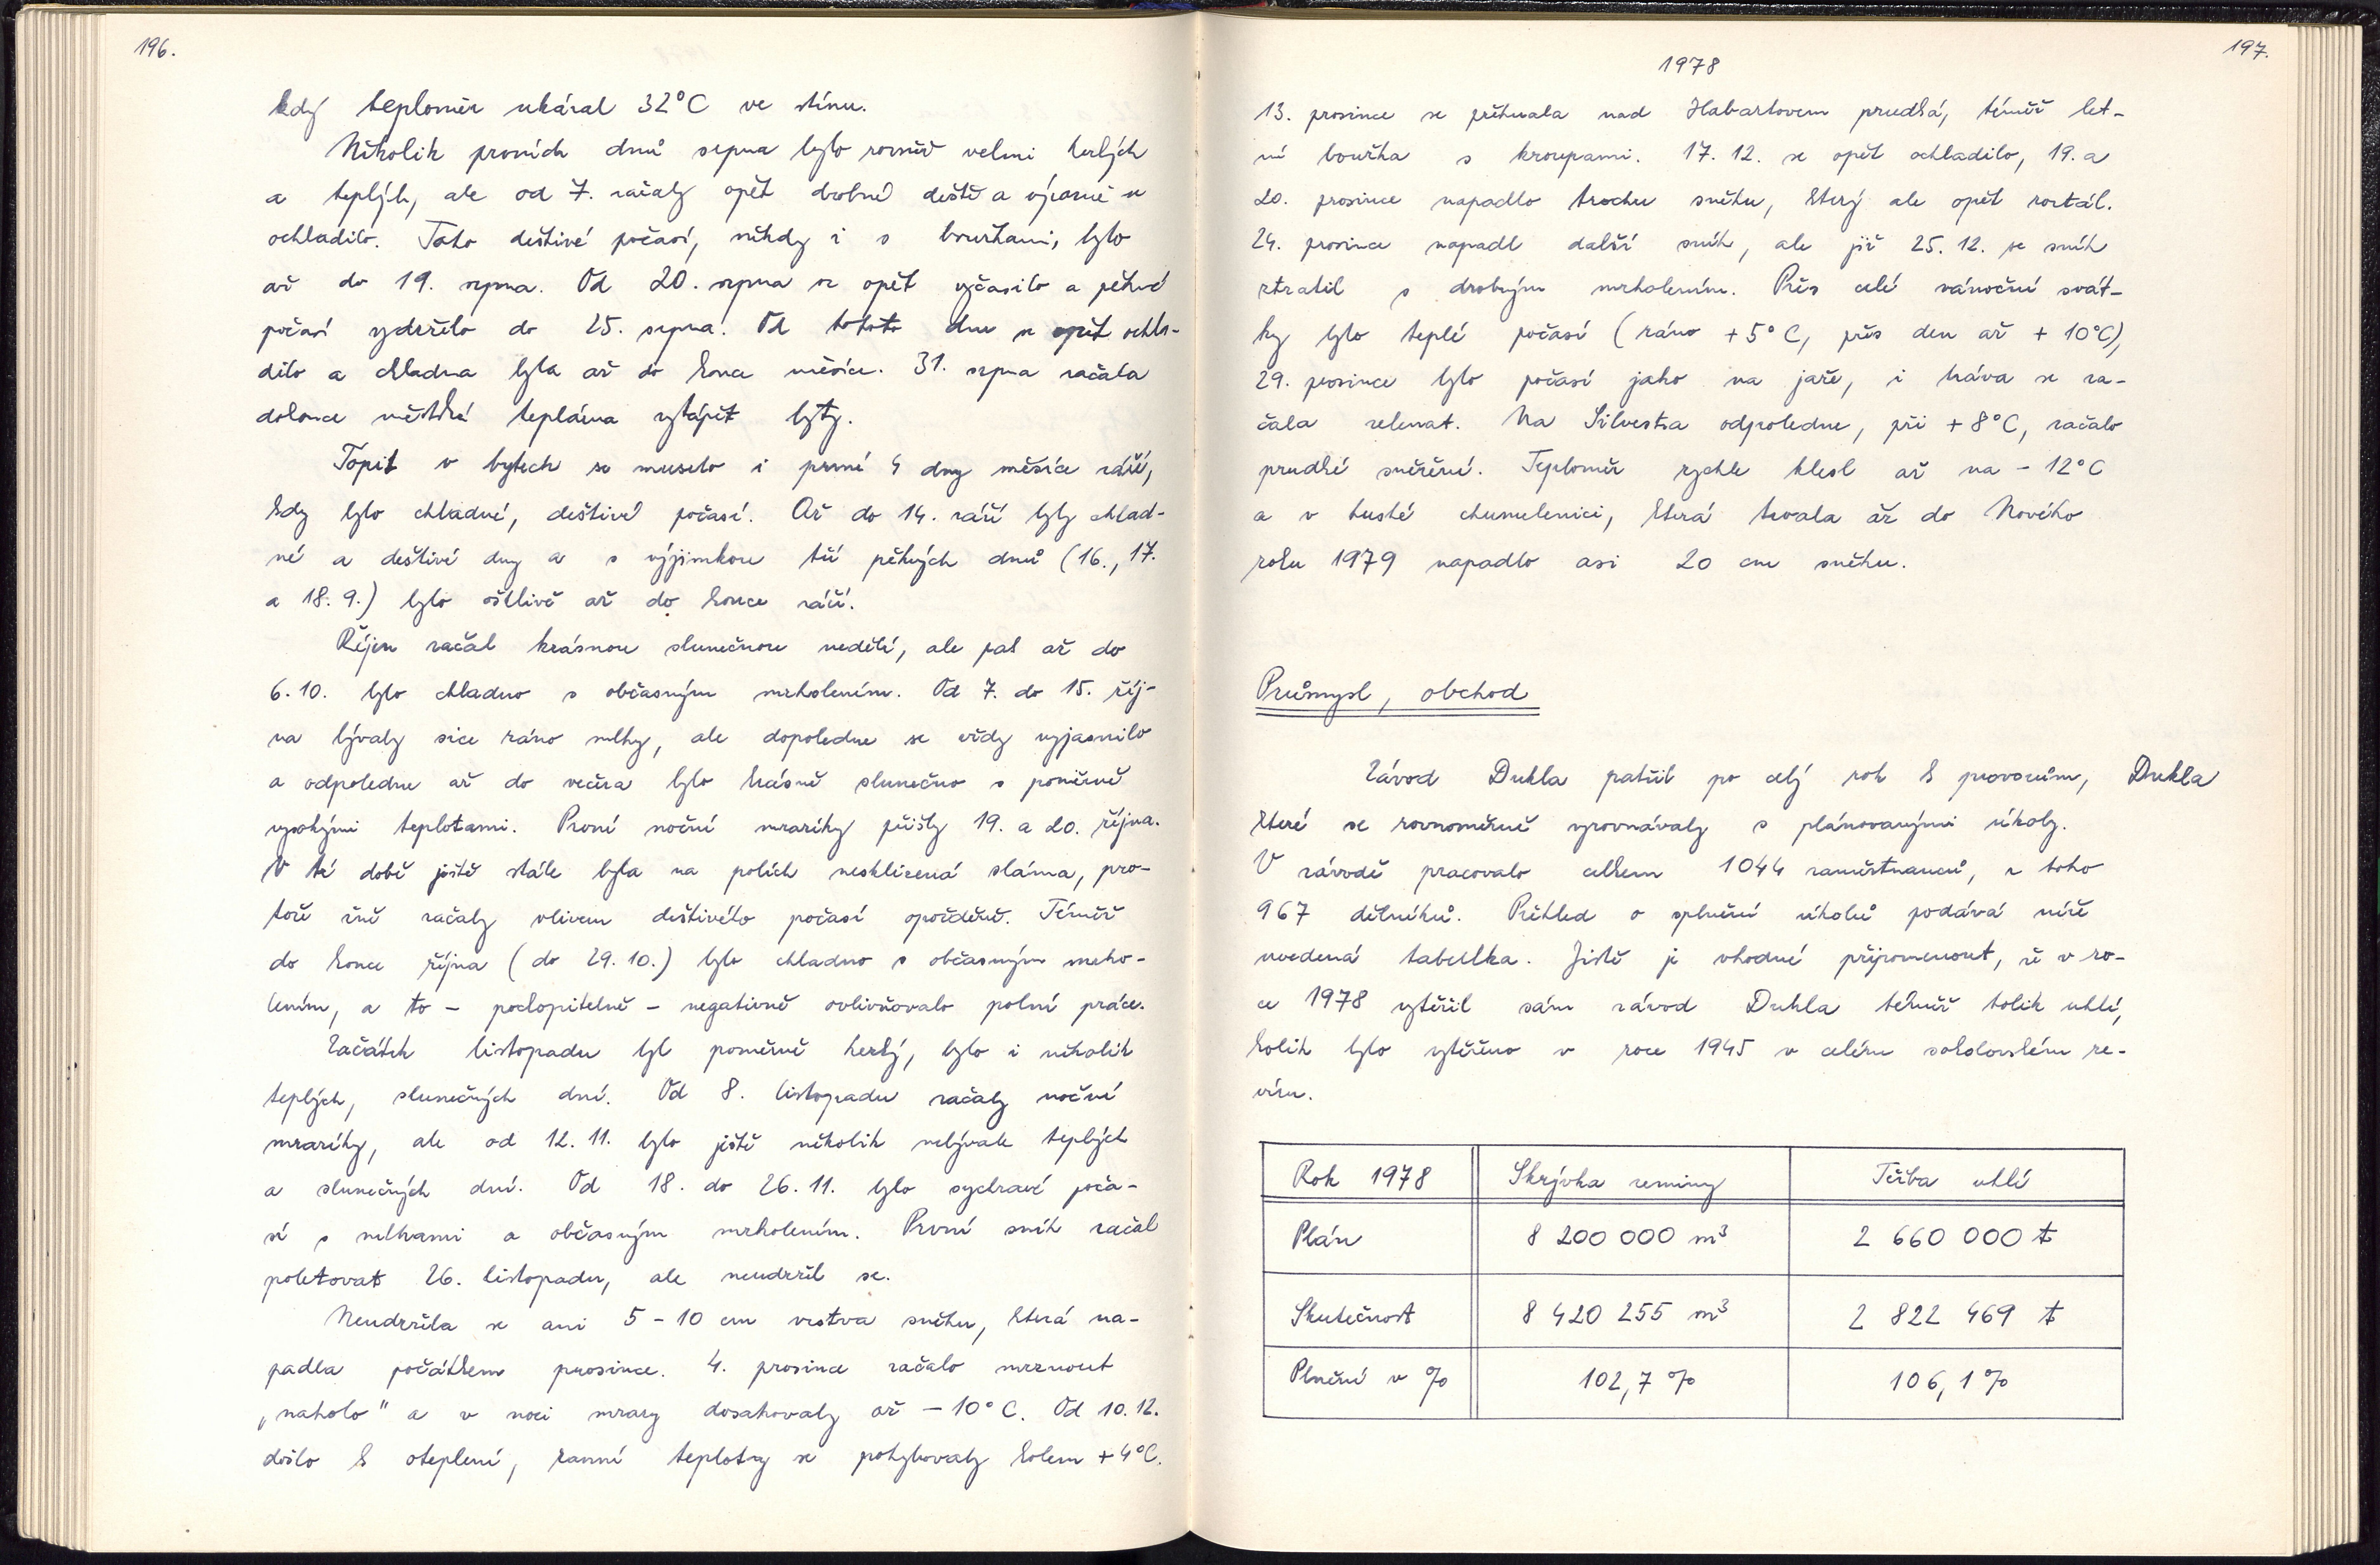 196.
kdy teploměr ukázal 32°C ve stínu.
Několik prvních dnů srpna bylo rovněž velmi hezkých
a teplých, ale od 7. začaly opět drobné deště a výrazně se
ochladilo. Toto deštivé počasí, někdy i s bouřkami, bylo
až do 19. srpna. Od 20. srpna se opět vyčasilo a pěkné
počasí vydrželo do 25. srpna. Od tohoto dne se opět ochla-
dilo a chladna byla až do konce měsíce. 31. srpna začala
dokonce městská teplárna vytápět byty.
Topit v bytech se muselo i první 4 dny měsíce září,
kdy bylo chladné, deštivé počasí. Až do 14. září byly chlad-
né a deštivé dny a s výjimkou tří pěkných dnů (16., 17.
a 18. 9.) bylo ošklivě až do konce září.
Říjen začal krásnou slunečnou nedělí, ale pak až do
6. 10. bylo chladno s občasným mrholením. Od 7. do 15. říj-
na bývaly sice ráno mlhy, ale dopoledne se vždy vyjasnilo
a odpoledne až do večera bylo krásně slunečno s poměrně
vysokými teplotami. První noční mrazíky přišly 19. a 20. října.
V té době ještě stále byla na polích nesklizená sláma, pro-
tože žně začaly vlivem deštivého počasí opožděně. Téměř
do konce října (do 29. 10.) bylo chladno s občasným mrho-
lením, a to – pochopitelně – negativně ovlivňovalo polní práce.
Začátek listopadu byl poměrně hezký, bylo i několik
teplých, slunečných dní. Od 8. listopadu začaly noční
mrazíky, ale od 12. 11. bylo ještě několik nebývale teplých
a slunečných dní. Od 18. do 26. 11. bylo sychravé poča-
sí s mlhami a občasným mrholením. První sníh začal
poletovat 26. listopadu, ale neudržel se.
Neudržela se ani 5 – 10 cm vrstva sněhu, která na-
padla počátkem prosince. 4. prosince začalo mrznout
„naholo" a v noci mrazy dosahovaly až – 10° C. Od 10. 12.
došlo k oteplení, ranní teploty se pohybovaly kolem + 4°C.
197.
1978
13. prosince se přehnala nad Habartovem prudká, téměř let-
ní bouřka s kroupami. 17. 12. se opět ochladilo, 19. a
20. prosince napadlo trochu sněhu, který ale opět roztál.
24. prosince napadl další sníh, ale již 25. 12. se sníh
ztratil s drobným mrholením. Přes celé vánoční svát-
ky bylo teplé počasí (ráno + 5° C, přes den až + 10°C),
29. prosince bylo počasí jako na jaře, i tráva se za-
čala zelenat. Na Silvestra odpoledne, při + 8°C, začalo
prudké sněžení. Teploměr rychle klesl až na – 12°C
a v husté chumelenici, která trvala až do Nového
roku 1979 napadlo asi 20 cm sněhu.
Průmysl, obchod
Závod Dukla patřil po celý rok k provozům,
Dukla
které se rovnoměrně vyrovnávaly s plánovanými úkoly.
V závodě pracovalo celkem 1044 zaměstnanců, z toho
967 dělníků. Přehled o splnění úkolů podává níže
uvedená tabulka. Jistě je vhodné připomenout, že v ro-
ce 1978 vytěžil sám závod Dukla téměř tolik uhlí,
kolik bylo vytěženo v roce 1945 v celém sokolovském re-
víru.
Rok 1978 Skrývka zeminy Těžba uhlí
Plán 8 200 000 m³ 2 660 000 t
Skutečnost 8 420 255 m³ 2 822 469 t
Plnění v % 102,7 % 106,1 %